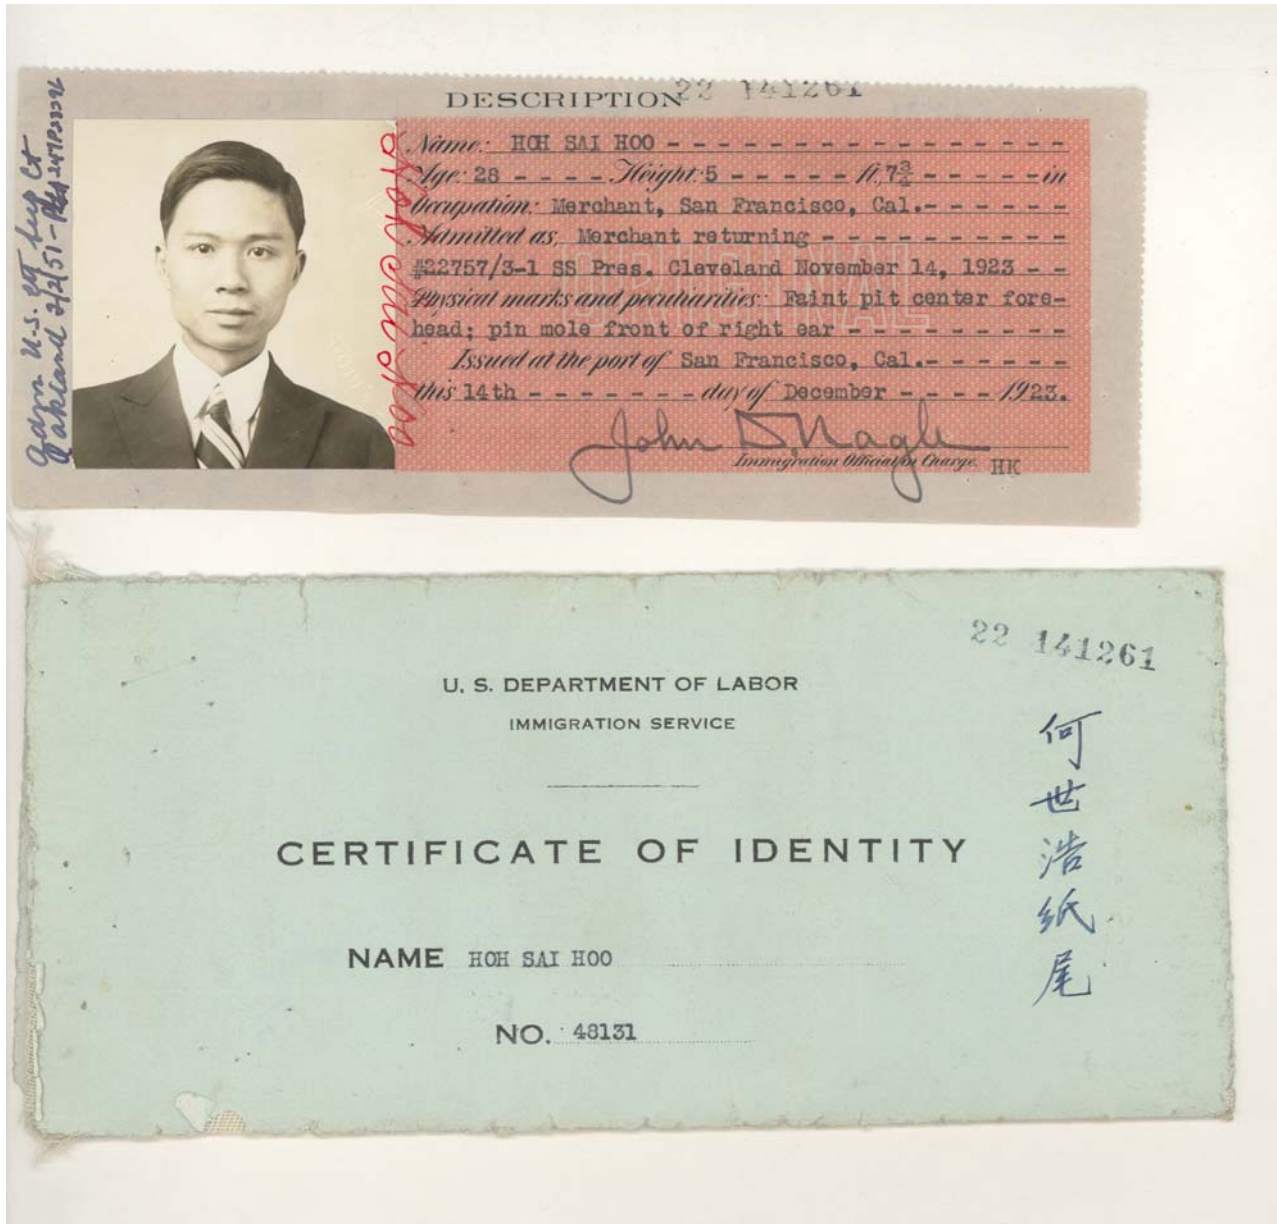 DESCRIPTION
22 141261
Name: HOH SAI HOO
Age: 28 Height: 5 ft, 7 3/4 in
Occupation: Merchant, San Francisco, Cal.
Admitted as, Merchant returning
#22757/3-1 SS Pres. Cleveland November 14, 1923
Physical marks and peculiarities: Faint pit center fore-
head; pin mole front of right ear
Issued at the port of San Francisco, Cal.
this 14th day of December 1923.
John D. Nagle
Immigration Official in Charge. HK
ORIGINAL
Hoh Sai Hoo
Oakland 2/2/51
22 141261
U. S. DEPARTMENT OF LABOR
IMMIGRATION SERVICE
CERTIFICATE OF IDENTITY
NAME HOH SAI HOO
NO. 48131
何世浩纸尾